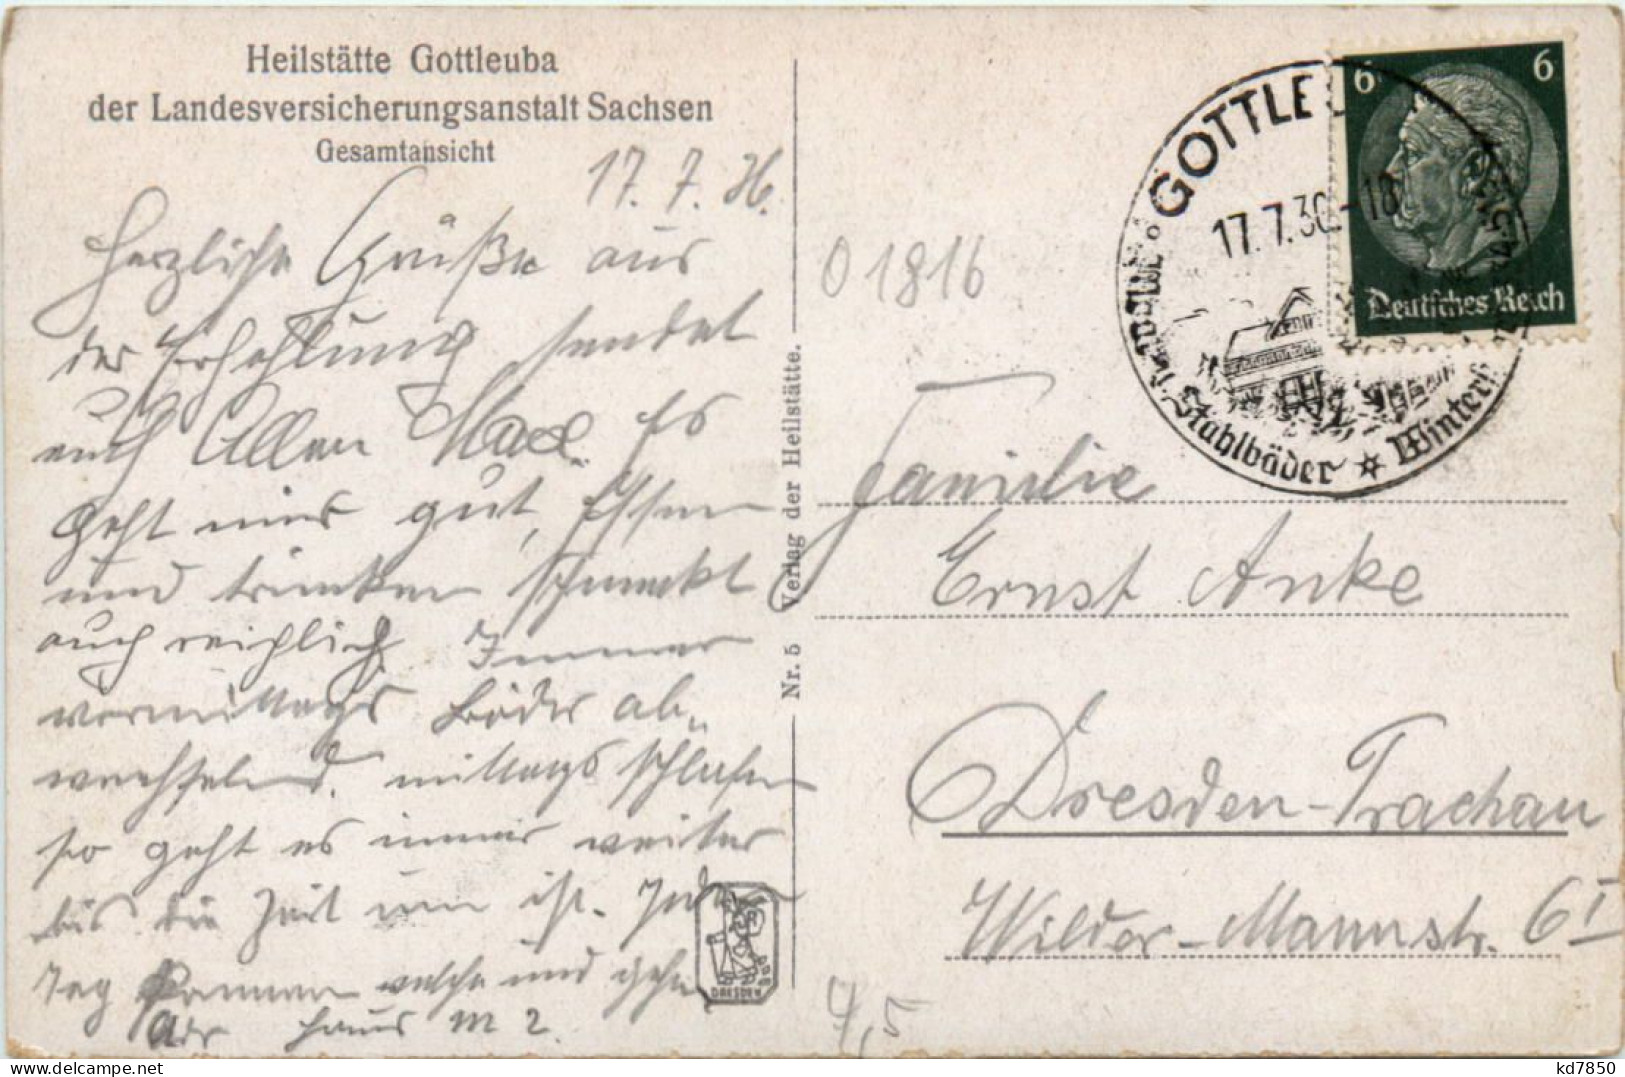 Heilstätte Gottleuba
der Landesversicherungsanstalt Sachsen
Gesamtansicht
17. 7. 36.
Herzliche Grüße aus
der Erhohlung sendet
euch Allen Max. Es
geht mir gut, Essen
und trinken schmeckt
auch reichlich Immer
vormittags Bäder ab-
wechselnd. mittags schlafen
so geht es immer weiter
bis die Zeit um ist. Jeden
Tag kommen welche und gehen
Adr Haus M 2.
Nr. 5 Verlag der Heilstätte.
DRESDEN
01816
GOTTLE
17.7.36-18
Stahlbäder * Winter
6 6
Deutsches Reich
Familie
Ernst Anke
Dresden-Trachau
Wilder-Mannstr. 6 I
4,5
kd7850